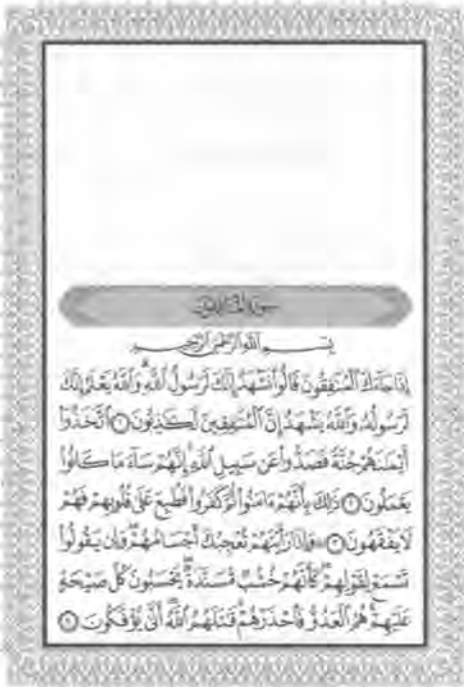 سورة المنافقون
بِسْمِ اللَّهِ الرَّحْمَٰنِ الرَّحِيمِ
إِذَا جَآءَكَ ٱلْمُنَٰفِقُونَ قَالُوا۟ نَشْهَدُ إِنَّكَ لَرَسُولُ ٱللَّهِ ۗ وَٱللَّهُ يَعْلَمُ إِنَّكَ
لَرَسُولُهُۥ وَٱللَّهُ يَشْهَدُ إِنَّ ٱلْمُنَٰفِقِينَ لَكَٰذِبُونَ ۝١ ٱتَّخَذُوٓا۟
أَيْمَٰنَهُمْ جُنَّةً فَصَدُّوا۟ عَن سَبِيلِ ٱللَّهِ ۚ إِنَّهُمْ سَآءَ مَا كَانُوا۟
يَعْمَلُونَ ۝٢ ذَٰلِكَ بِأَنَّهُمْ ءَامَنُوا۟ ثُمَّ كَفَرُوا۟ فَطُبِعَ عَلَىٰ قُلُوبِهِمْ فَهُمْ
لَا يَفْقَهُونَ ۝٣ ۞ وَإِذَا رَأَيْتَهُمْ تُعْجِبُكَ أَجْسَامُهُمْ ۖ وَإِن يَقُولُوا۟
تَسْمَعْ لِقَوْلِهِمْ ۖ كَأَنَّهُمْ خُشُبٌ مُّسَنَّدَةٌ ۖ يَحْسَبُونَ كُلَّ صَيْحَةٍ
عَلَيْهِمْ ۚ هُمُ ٱلْعَدُوُّ فَٱحْذَرْهُمْ ۚ قَٰتَلَهُمُ ٱللَّهُ ۖ أَنَّىٰ يُؤْفَكُونَ ۝٤